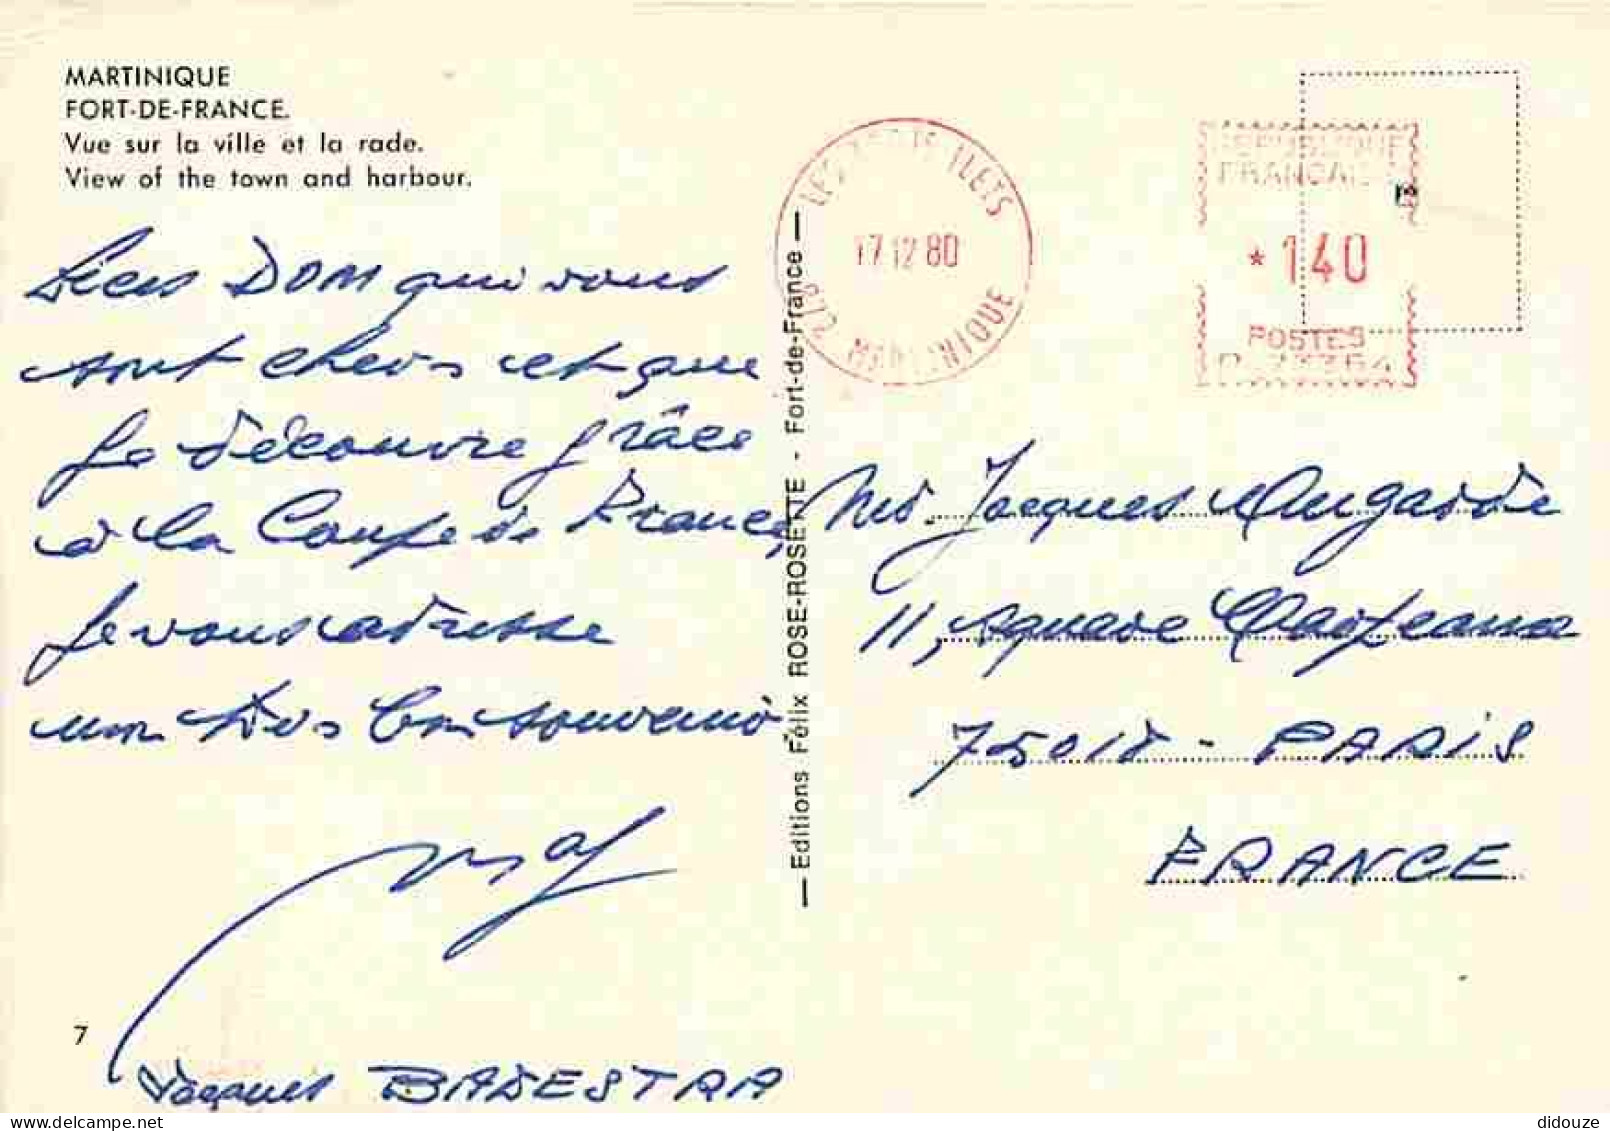 MARTINIQUE
FORT-DE-FRANCE.
Vue sur la ville et la rade.
View of the town and harbour.
DOM qui vous
sont chers et que
je découvre grâce
à la Coupe de France,
je vous adresse
mon très bon souvenir
Jacques BADESTRA
7
Editions Félix ROSE-ROSETTE - Fort-de-France
LES TROIS ILETS
17 12 80
972 MARTINIQUE
REPUBLIQUE
FRANCAISE
*140
POSTES
Mr. Jacques Augarde
11, square
75018 - PARIS
FRANCE
didouze